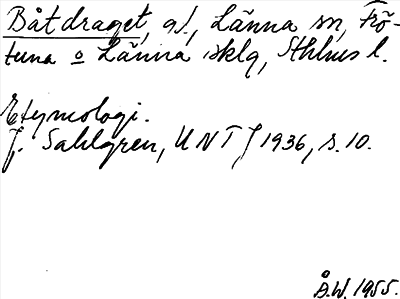 Båtdraget, gd, Länna sn, Frö-
tuna o Länna sklg, Sthlms l.
Etymologi.
J. Sahlgren, UNTJ 1936, s. 10.
Å.W. 1955.